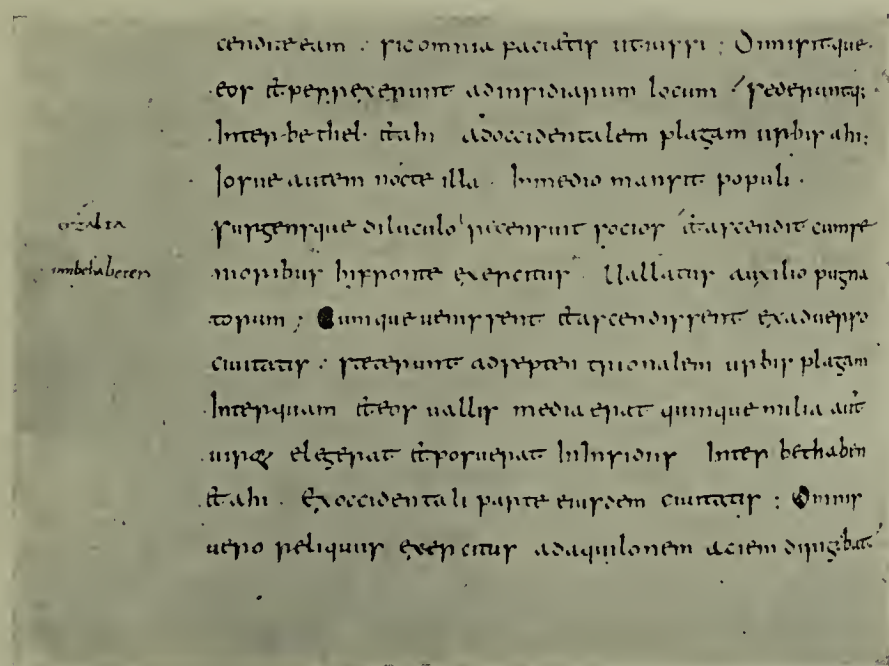 cendite eam : sic omnia faciatis ut iussi : Dimisitque
eos et perrexerunt ad insidiarum locum / sederuntq;
Inter bethel et ahi ad occidentalem plagam urbis ahi;
Iosue autem nocte illa . In medio mansit populi .
surgensque diluculo recensuit socios et ascendit cum se
nioribus In fronte exercitus Uallatus auxilio pugna
torum ; Cumque uenissent et ascendissent ex aduerso
ciuitatis : steterunt ad septen trionalem urbis plagam
Inter quam et eos uallis media erat quinque milia aut
uiros elegerat et posuerat In Insidiis Inter bethaben
et ahi . Ex occidentali parte eiusdem ciuitatis : Omnis
uero reliquus exercitus ad aquilonem aciem dirigebat